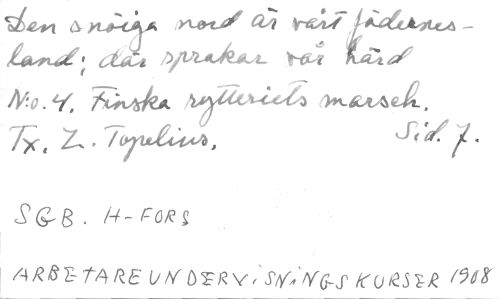 Den snöiga nord är vårt fädernes-
land; där sprakar vår härd
N:o. 4. Finska rytteriets marsch.
Tx. Z. Topelius. Sid. 7.
SGB. H-FORS
ARBETAREUNDERVISNINGSKURSER 1908